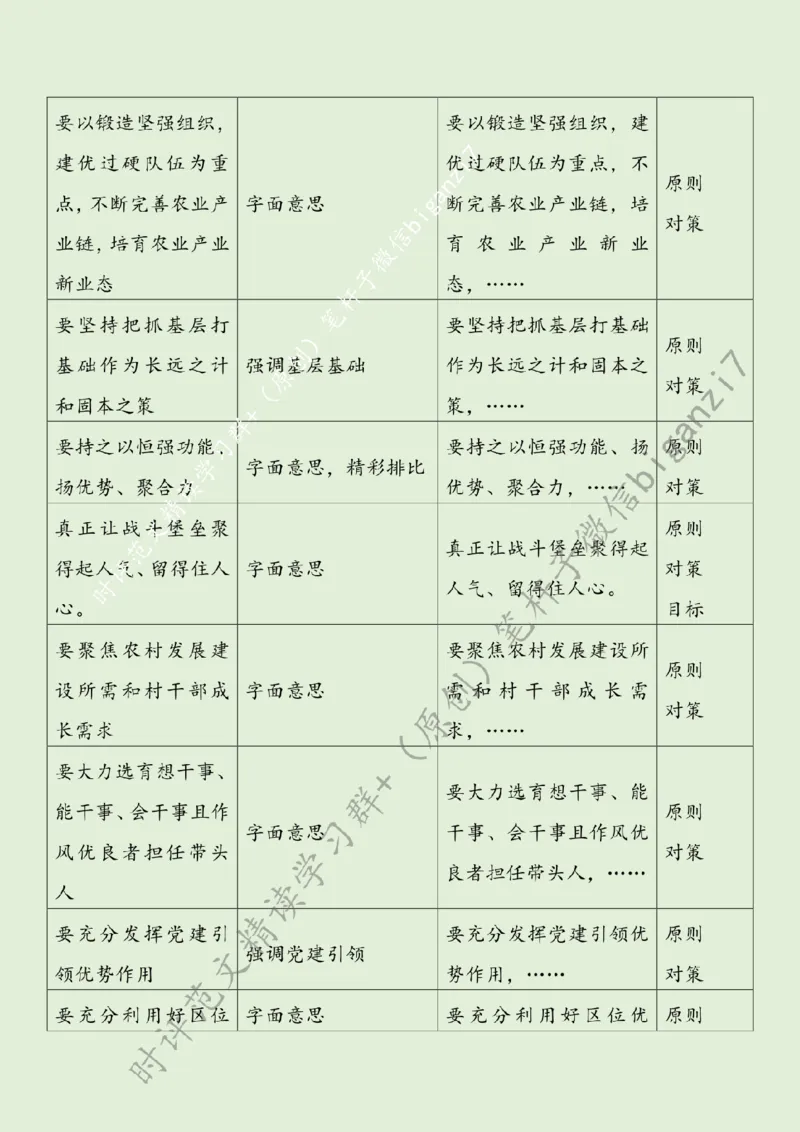 要以锻造坚强组织，
建优过硬队伍为重
点，不断完善农业产
业链，培育农业产业
新业态
字面意思
要以锻造坚强组织，建
优过硬队伍为重点，不
断完善农业产业链，培
育农业产业新业
态，……
原则
对策
要坚持把抓基层打
基础作为长远之计
和固本之策
强调基层基础
要坚持把抓基层打基础
作为长远之计和固本之
策，……
原则
对策
要持之以恒强功能、
扬优势、聚合力
字面意思，精彩排比
要持之以恒强功能、扬
优势、聚合力，……
原则
对策
真正让战斗堡垒聚
得起人气、留得住人
心。
字面意思
真正让战斗堡垒聚得起
人气、留得住人心。
原则
对策
目标
要聚焦农村发展建
设所需和村干部成
长需求
字面意思
要聚焦农村发展建设所
需和村干部成长需
求，……
原则
对策
要大力选育想干事、
能干事、会干事且作
风优良者担任带头
人
字面意思
要大力选育想干事、能
干事、会干事且作风优
良者担任带头人，……
原则
对策
要充分发挥党建引
领优势作用
强调党建引领
要充分发挥党建引领优
势作用，……
原则
对策
要充分利用好区位
字面意思
要充分利用好区位优
原则
时评范文精读学习群+（原创）笔杆子微信biganzi7
时评范文精读学习群+（原创）笔杆子微信biganzi7